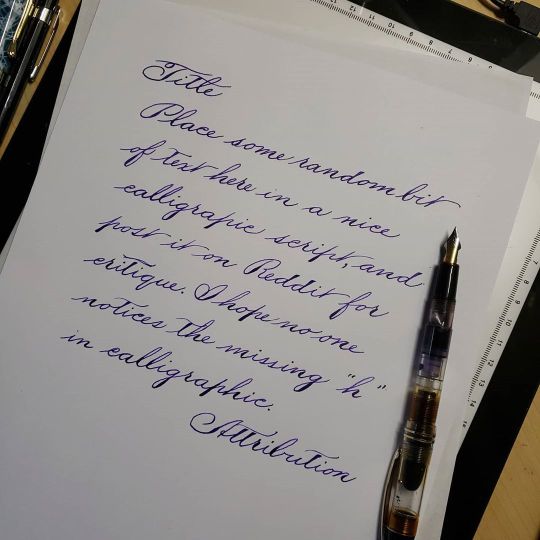 Title
Place some random bit
of text here in a nice
calligrapic script, and
post it on Reddit for
critique. I hope no one
notices the missing "h"
in calligraphic.
Attribution